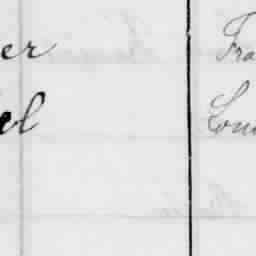 er Fra
el Loui